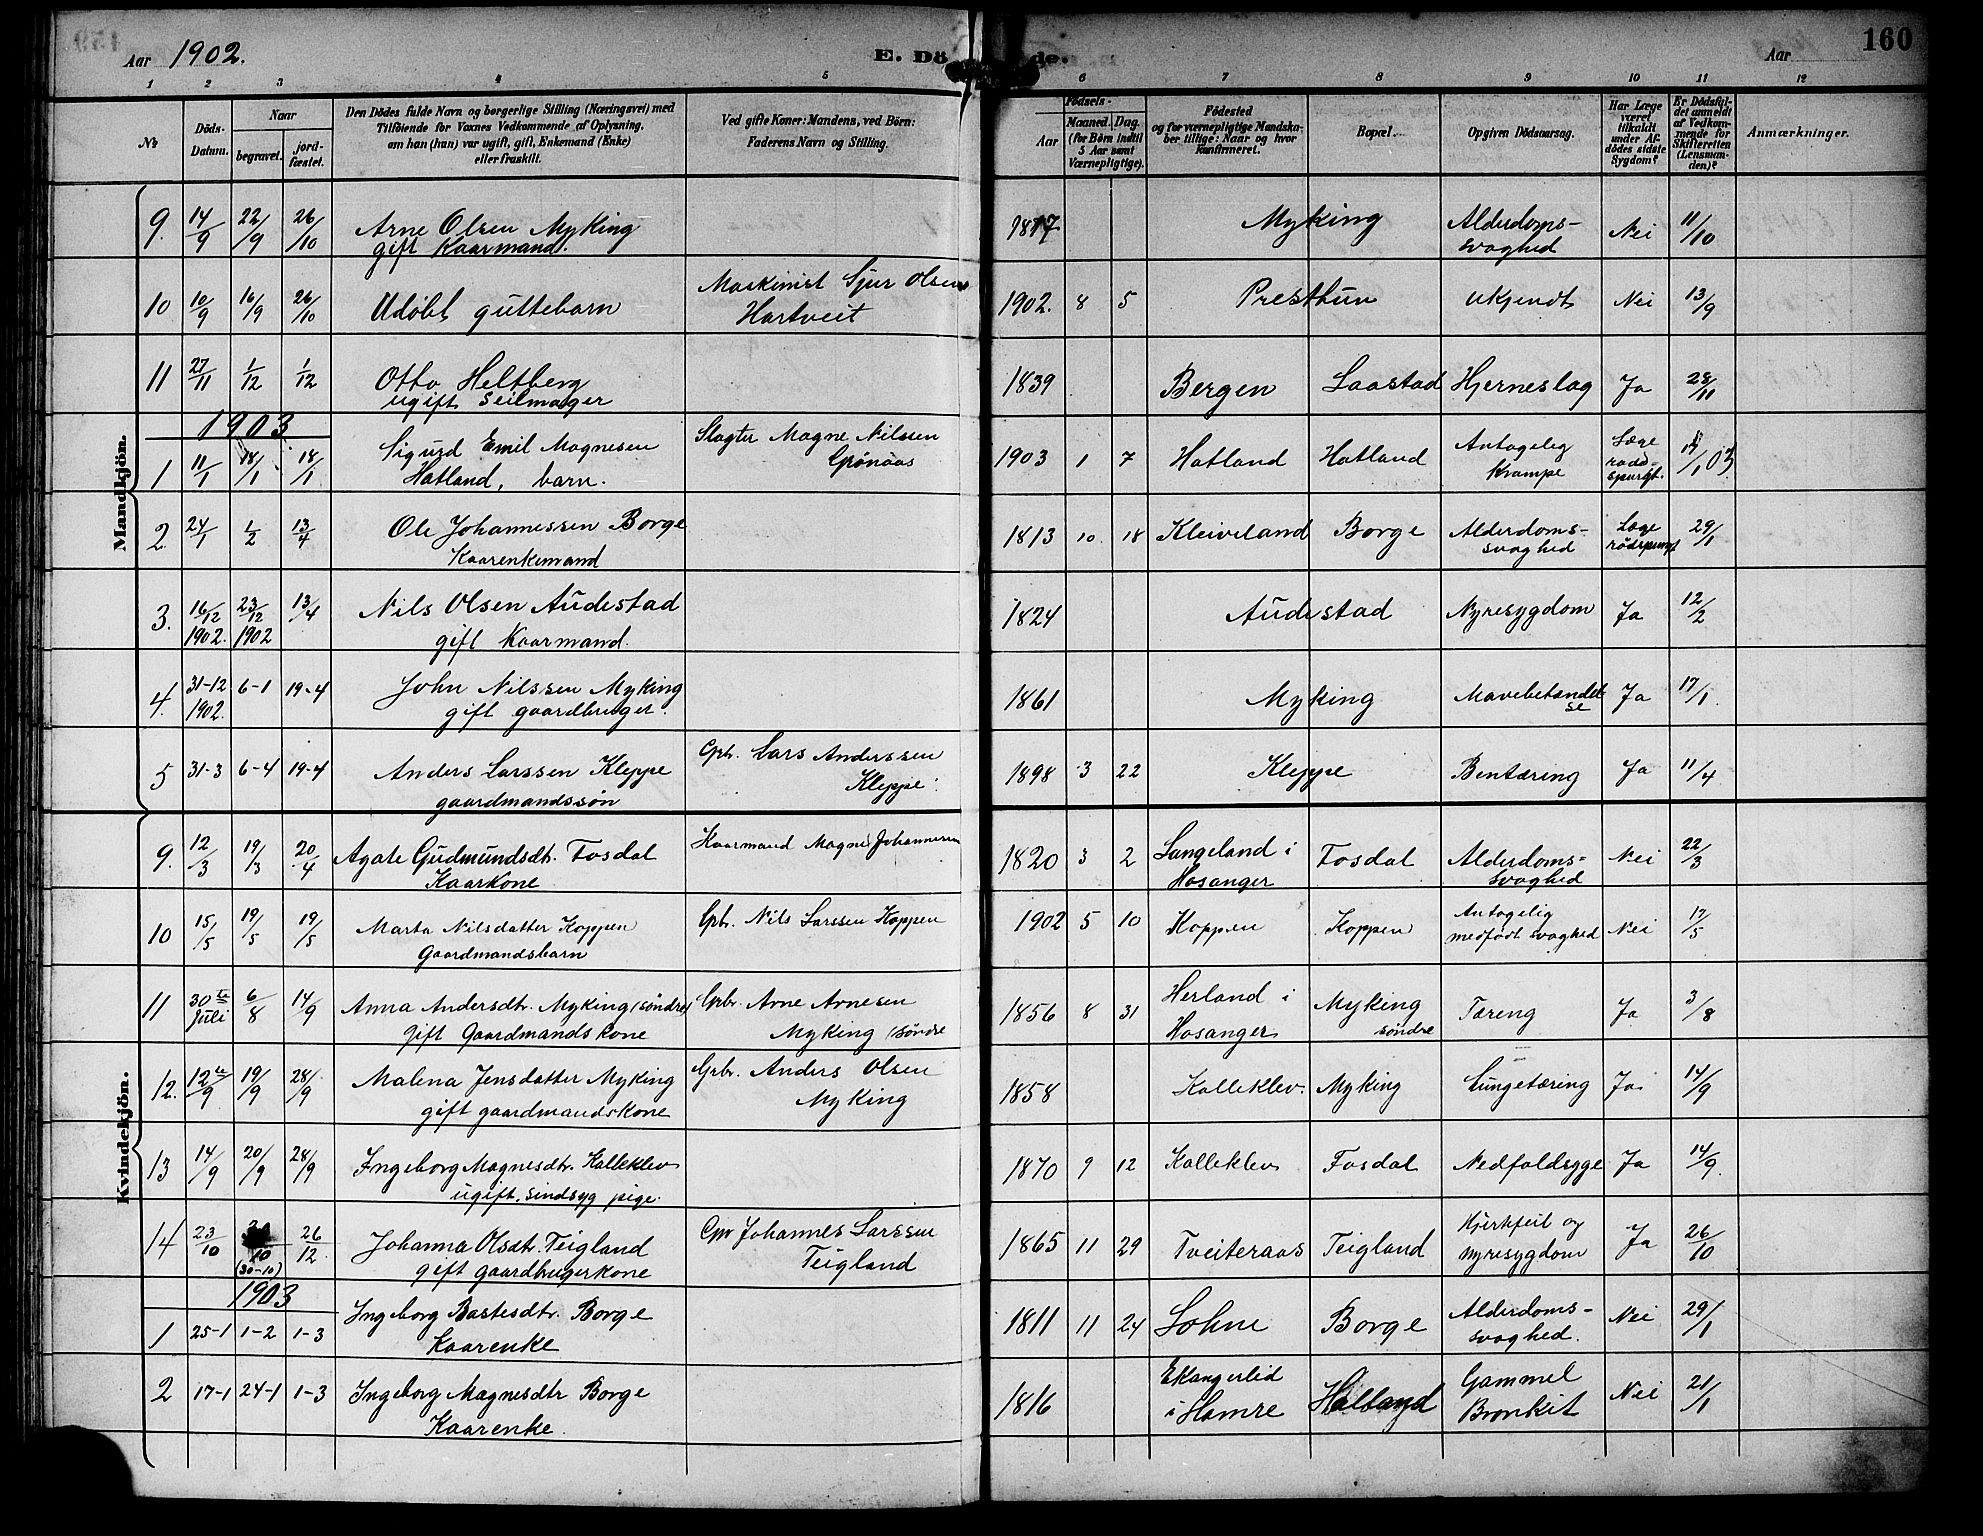 Aar 1902.
E. Dö de.
Aar
160
1 2 3 4 5 6 7 8 9 10 11 12
№
Döds-Datum.
Naar
begravet.
jord-fæstet.
Den Dödes fulde Navn og borgerlige Stilling (Næringsvei) med
Tilföiende for Voxnes Vedkommende af Oplysning,
om han (hun) var ugift, gift, Enkemand (Enke)
eller fraskilt.
Ved gifte Koner: Mandens, ved Börn:
Faderens Navn og Stilling.
Födsels-
Aar
Maaned. Dag.
(for Börn indtil
5 Aar samt
Værnepligtige).
Födested
og for værnepligtige Mandska-
ber tillige: Naar og hvor
konfirmeret.
Bopæl.
Opgiven Dödsaarsag.
Har Læge
været
tilkaldt
under Af-
dödes sidste
Sygdom?
Er Dödsfal-
det anmeldt
af Vedkom-
mende for
Skifteretten
(Lensman-
den)?
Anmærkninger.
Mandkjön.
9. 14/9 22/9 26/10 Arne Olsen Myking 1817 Myking Alderdoms- Nei 11/10
gift Kaarmand. svaghed
10 10/9 16/9 26/10 Udöbt guttebarn Maskinist Sjur Olsen 1902. 8 5 Presthun ukjendt Nei 13/9
Hartveit
11 27/11 1/12 1/12 Otto Heltberg 1839 Bergen Laastad Hjerneslag Ja 28/11
ugift seilmager
1903
1 11/1 18/1 18/1 Sigurd Emil Magnesen Slagter Magne Nilssen 1903 1 7 Hatland Hatland Antagelig Læge /1 03.
Hatland, barn. Grönaas Krampe raad-
spurgt.
2. 24/1 1/2 13/4 Ole Johannessen Borge 1813 10. 18 Kleiveland Borge Alderdoms- Læge 29/1
Kaarenkemand svaghed
3. 16/12 23/12 13/4 Nils Olsen Audestad 1824 Audestad Nyresygdom Ja 12/2
1902. 1902 gift Kaarmand.
4. 31-12 6-1 19-4 John Nilssen Myking 1861 Myking Mavebetændel Ja 17/1.
1902. gift gaardbruger. se
5 31-3 6-4 19-4 Anders Larssen Kleppe Gbr. Lars Anderssen 1898 3 22 Kleppe Bentæring Ja 11/4
gaardmandssön Kleppe.
Kvindekjön.
9. 12/3 19/3 20/4 Agate Gudmundsdt. Fosdal Kaarmand Magne Johannessen 1820 3 2 Langeland i Fosdal Alderdoms- Nei 22/3
Kaarkone Hosanger svaghed
10 15/5 19/5 19/5 Marta Nilsdatter Koppen Gbr. Nils Larssen Koppen 1902 5 10 Koppen Koppen Antagelig Nei 17/5
Gaardmandsbarn medfödt svaghed
11 30te 6/8 14/9 Anna Andersdtr. Myking (söndre) Gbr. Arne Arnesen 1856 8 31 Herland i Myking Tæring Ja 3/8
Juli gift Gaardmandskone Myking (söndre Hosanger söndre
12. 12te/9 19/9 28/9 Malena Jensdatter Myking Gbr. Anders Olsen 1858 Kalleklev. Myking Lungetæring Ja 14/9
gift gaardmandskone Myking
13 14/9 20/9 28/9 Ingeborg Magnesdtr. Kalleklev 1870 9 12 Kalleklev Fosdal Nedfaldsyge Ja 14/9.
ugift, sindsyg pige.
14 23/10 /10 26/12. Johanna Olsdtr. Teigland Gbr Johannes Larssen 1865 11 29 Tveiteraas Teigland Hjertfeil og Ja 26/10
(30-10) gift gaardbrugerkone Teigland nyresygdom
1903
1 25-1 1-2 1-3 Ingeborg Bastesdtr. Borge 1811 11 24 Lohne Borge Alderdoms- Nei 29/1
Kaarenke svaghed.
2 17-1 24-1 1-3 Ingeborg Magnesdtr Borge 1816 Ekangerlid Gammel Nei 21/1
Kaarenke. i Hamre Hatland Bronkit